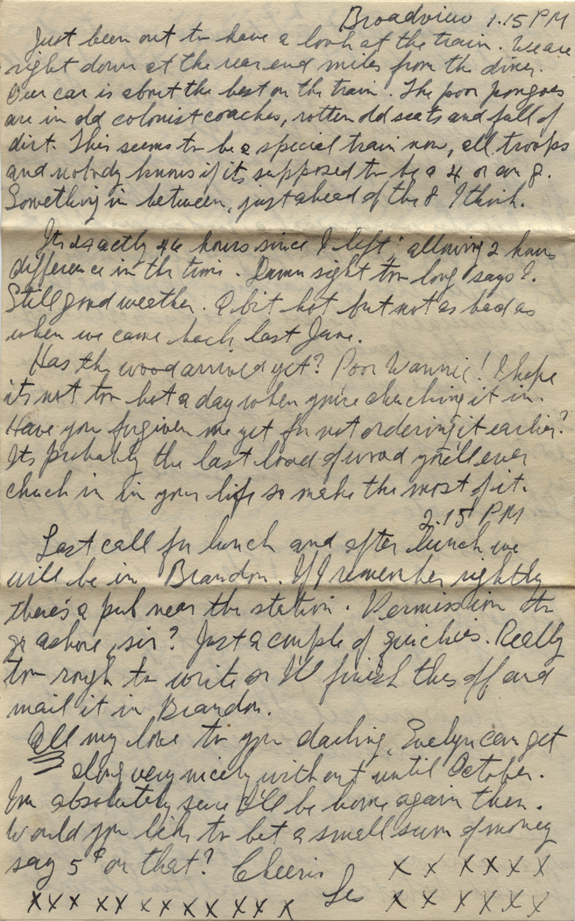 Broadview 1.15 PM
Just been out to have a look at the train. We are
right down at the rear end miles from the diner.
Our car is about the best on the train. The poor pongoes
are in old colonist coaches, rotten old seats and full of
dirt. This seems to be a special train now, all troops
and nobody knows if its supposed to be a 4 or an 8.
Something in between, just ahead of the 8 I think.
Its exactly 46 hours since I left, allowing 2 hours
difference in the time. Damn sight too long says I.
Still good weather. A bit hot but not as bad as
when we came back last June.
Has the wood arrived yet? Poor Wannie! I hope
its not too hot a day when you're chucking it in.
Have you forgiven me yet for not ordering it earlier?
Its probably the last load of wood you'll ever
chuck in in your life so make the most of it.
2.15 PM
Last call for lunch and after lunch we
will be in Brandon. If I remember rightly
there's a pub near the station. Permission to
go ashore, sir? Just a couple of quickies. Really
too rough to write so I'll finish this off and
mail it in Brandon.
All my love to you darling, Evelyn can get
along very nicely without until October.
Im absolutely sure I'll be home again then.
Would you like to bet a small sum of money
say 5¢ on that? Cheerio x x x x x x
xxx xx xx x x x x x x Les x x x x x x